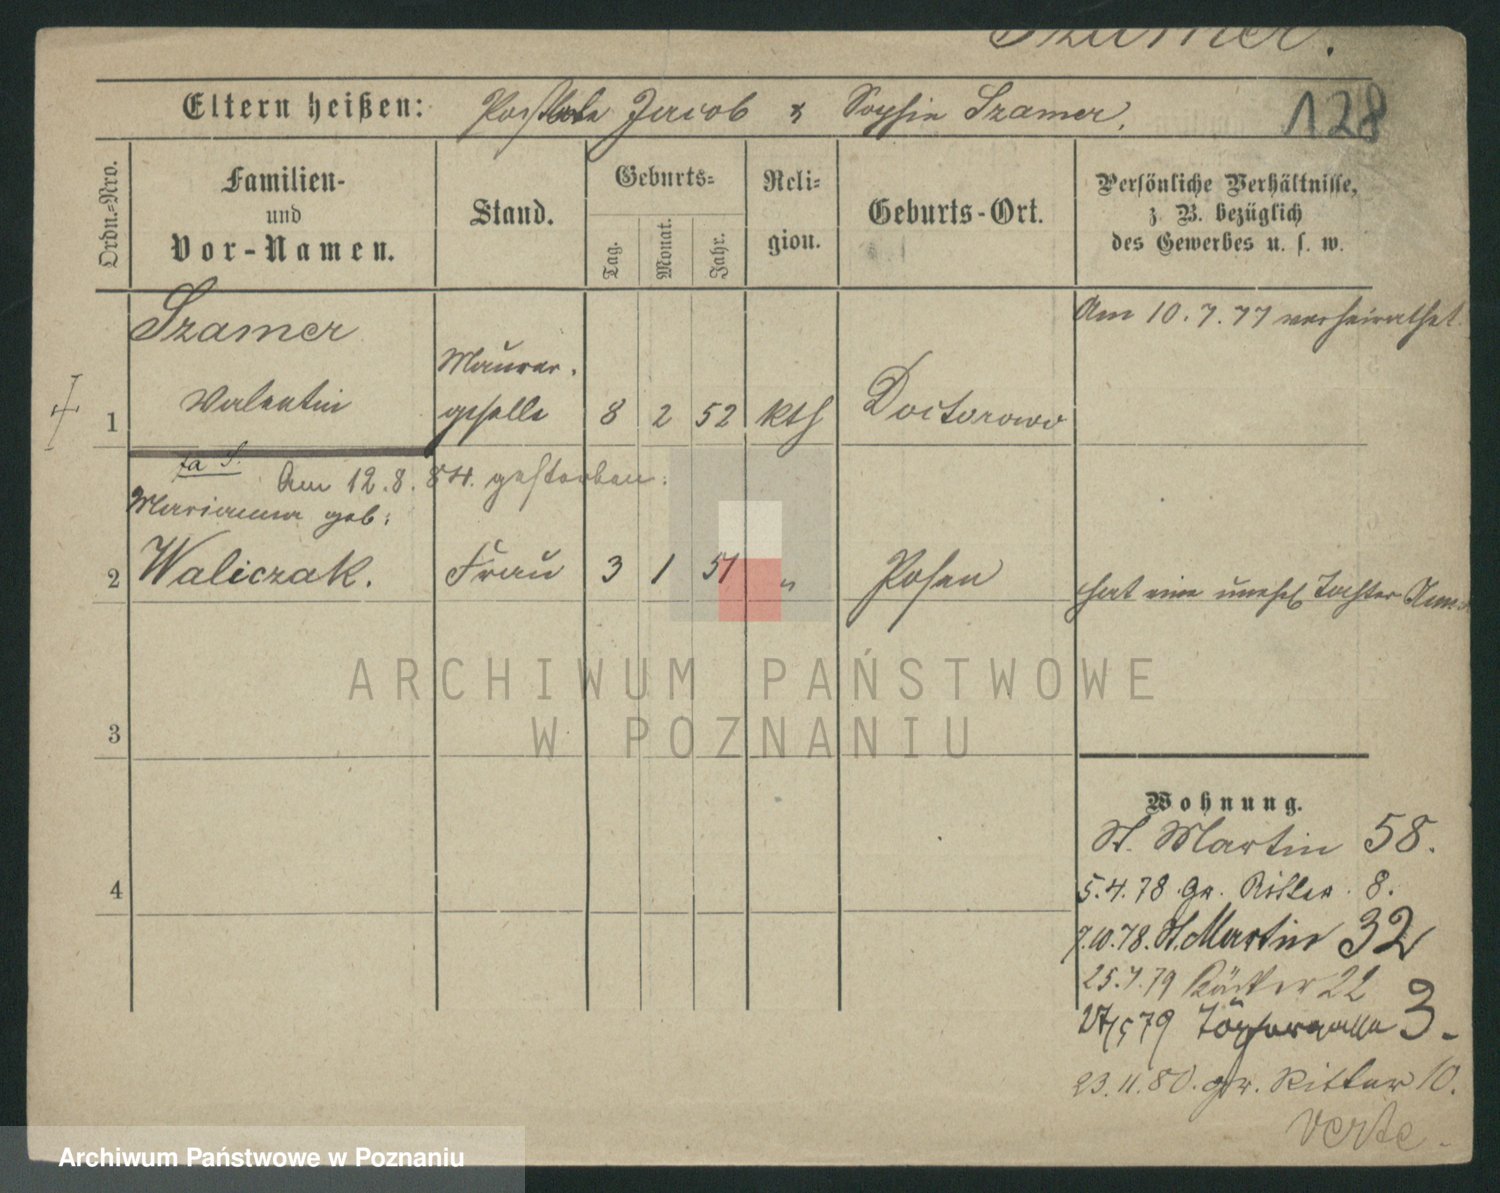 Szamer.
128
Eltern heißen: Jacob & Sophie Szamer.
Ordn.-Nro.
Familien- und Vor-Namen.
Stand.
Geburts-
Tag. Monat. Jahr.
Religion.
Geburts-Ort.
Persönliche Verhältnisse,
z. B. bezüglich
des Gewerbes u. s. w.
Szamer
Am 10.7.77 verheirathet
Maurer-
1 Valentin geselle 8 2 52 kth Doctorowo
Am 12.8.84. gestorben.
Marianna geb.
2 Waliczak. Frau 3 1 51 " Posen
hat eine unehl Tochter Anna
ARCHIWUM PAŃSTWOWE
W POZNANIU
3
4
Wohnung.
St. Martin 58.
5.4.78 Gr. Ritter. 8.
7.10.78. St. Martin 32
25.7.79 Bäcker 22
79 Töpfergasse 3.
23.11.80. gr. Ritter 10.
verte.
Archiwum Państwowe w Poznaniu